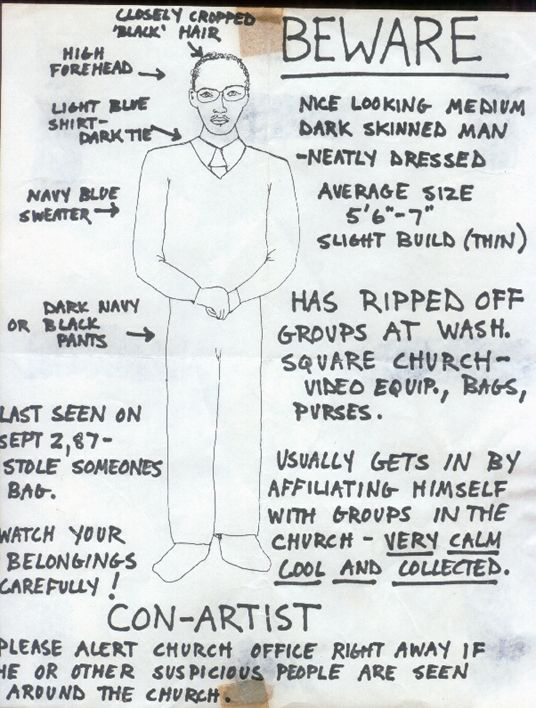 BEWARE
CLOSELY CROPPED
'BLACK' HAIR
HIGH
FOREHEAD
LIGHT BLUE
SHIRT-
DARK TIE
NAVY BLUE
SWEATER
DARK NAVY
OR BLACK
PANTS
NICE LOOKING MEDIUM
DARK SKINNED MAN
-NEATLY DRESSED
AVERAGE SIZE
5'6"-7"
SLIGHT BUILD (THIN)
HAS RIPPED OFF
GROUPS AT WASH.
SQUARE CHURCH-
VIDEO EQUIP., BAGS,
PURSES.
LAST SEEN ON
SEPT 2, 87-
STOLE SOMEONES
BAG.
WATCH YOUR
BELONGINGS
CAREFULLY!
USUALLY GETS IN BY
AFFILIATING HIMSELF
WITH GROUPS IN THE
CHURCH - VERY CALM
COOL AND COLLECTED.
CON-ARTIST
PLEASE ALERT CHURCH OFFICE RIGHT AWAY IF
HE OR OTHER SUSPICIOUS PEOPLE ARE SEEN
AROUND THE CHURCH.